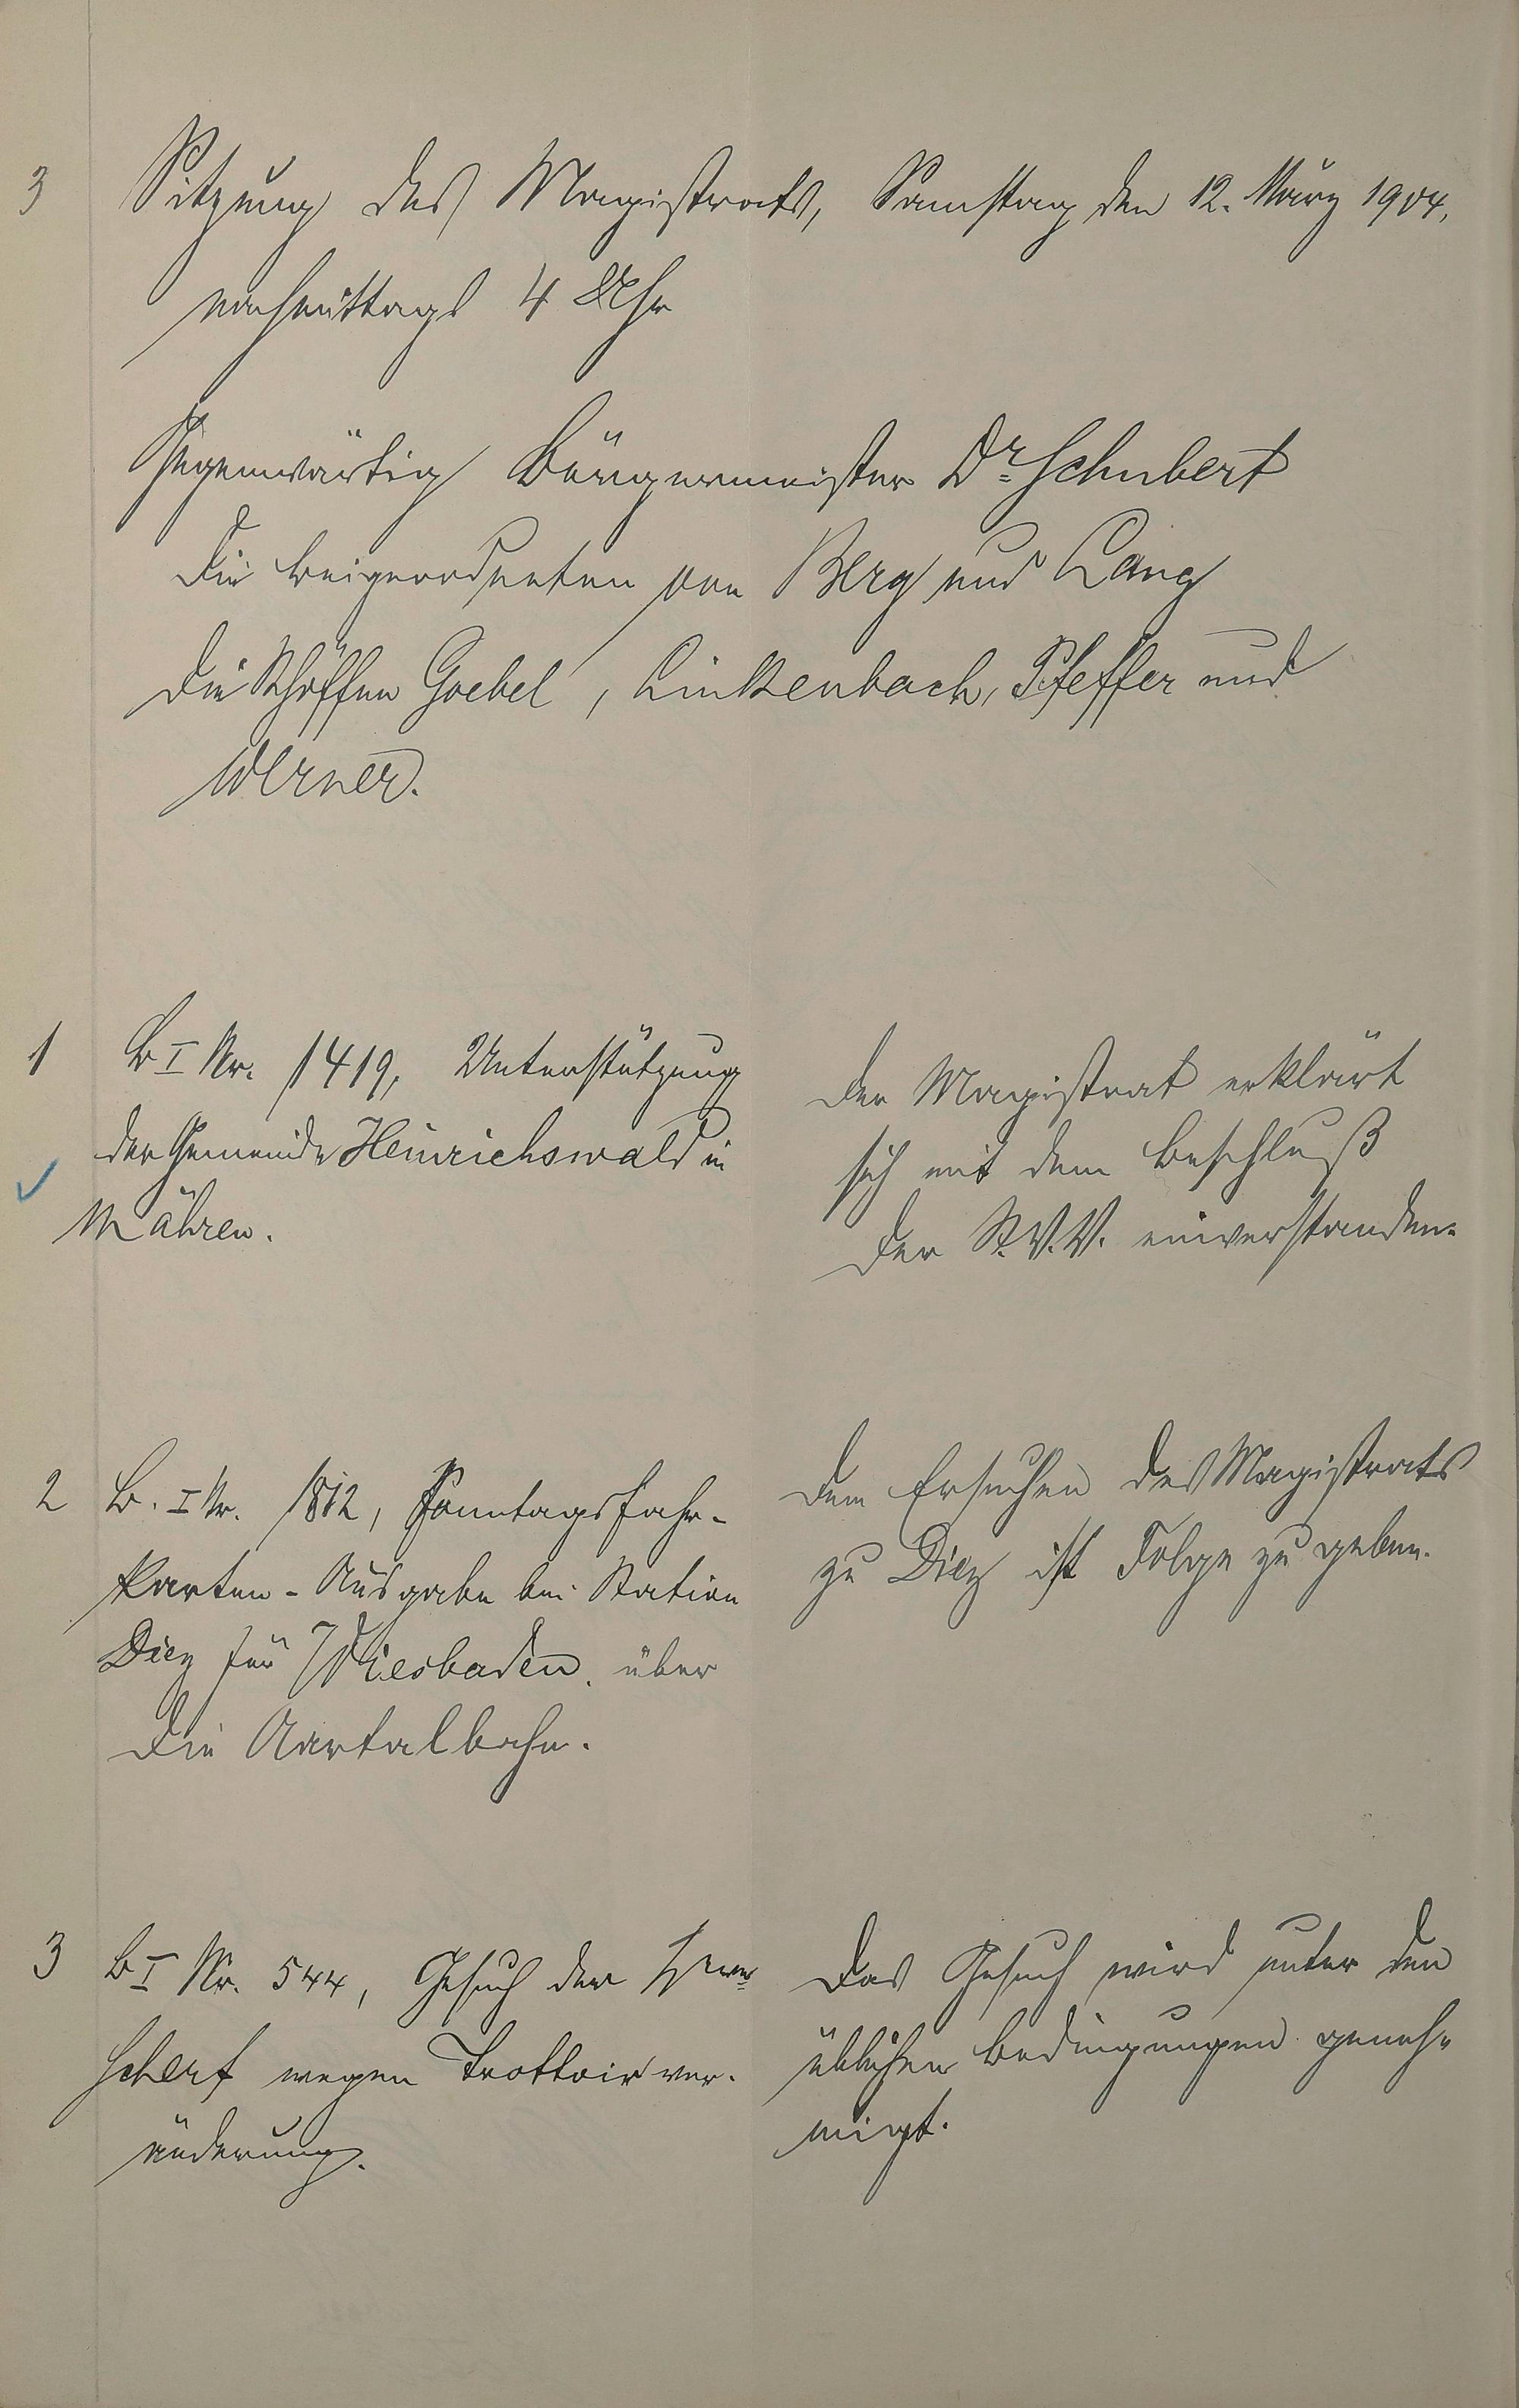 3
Sitzung des Magistrats, Samstag den 12. März 1904,
nachmittags 4 Uhr
Gegenwärtig Bürgermeister Dr. Schubert
die Beigeordneten von Berg und Lang
die Schöffen Goebel, Linkenbach, Pfeffer und
Werner.
1
B I Nr. 1419, Unterstützung
der Gemeinde Heinrichswald in
Mähren.
Der Magistrat erklärt
sich mit dem Beschluß
der St. V. V. einverstanden.
2
B. I Nr. 1812, Sonntagsfahr-
karten-Ausgabe bei Station
Diez für Wiesbaden über
die Aartalbahn.
Dem Ersuchen des Magistrats
zu Diez ist Folge zu geben.
3
B I Nr. 544, Gesuch der
Scherf wegen Trottoirver-
änderung.
Das Gesuch wird unter den
üblichen Bedingungen geneh-
migt.